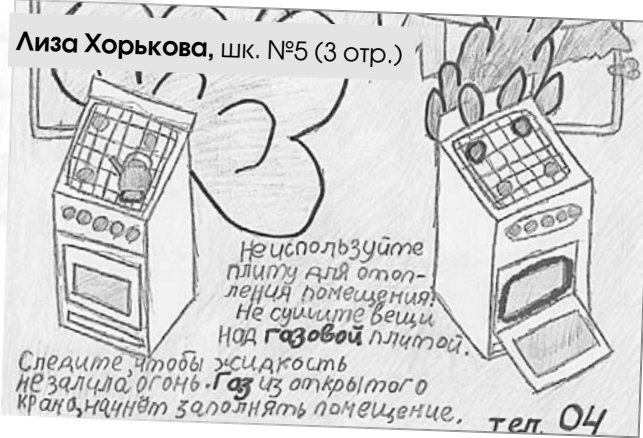 Лиза Хорькова, шк. №5 (3 отр.)
Не используйте
плиту для отоп-
ления помещения!
Не сушите вещи
над газовой плитой.
Следите, чтобы жидкость
не залила огонь. Газ из открытого
крана, начнёт заполнять помещение.
тел. 04